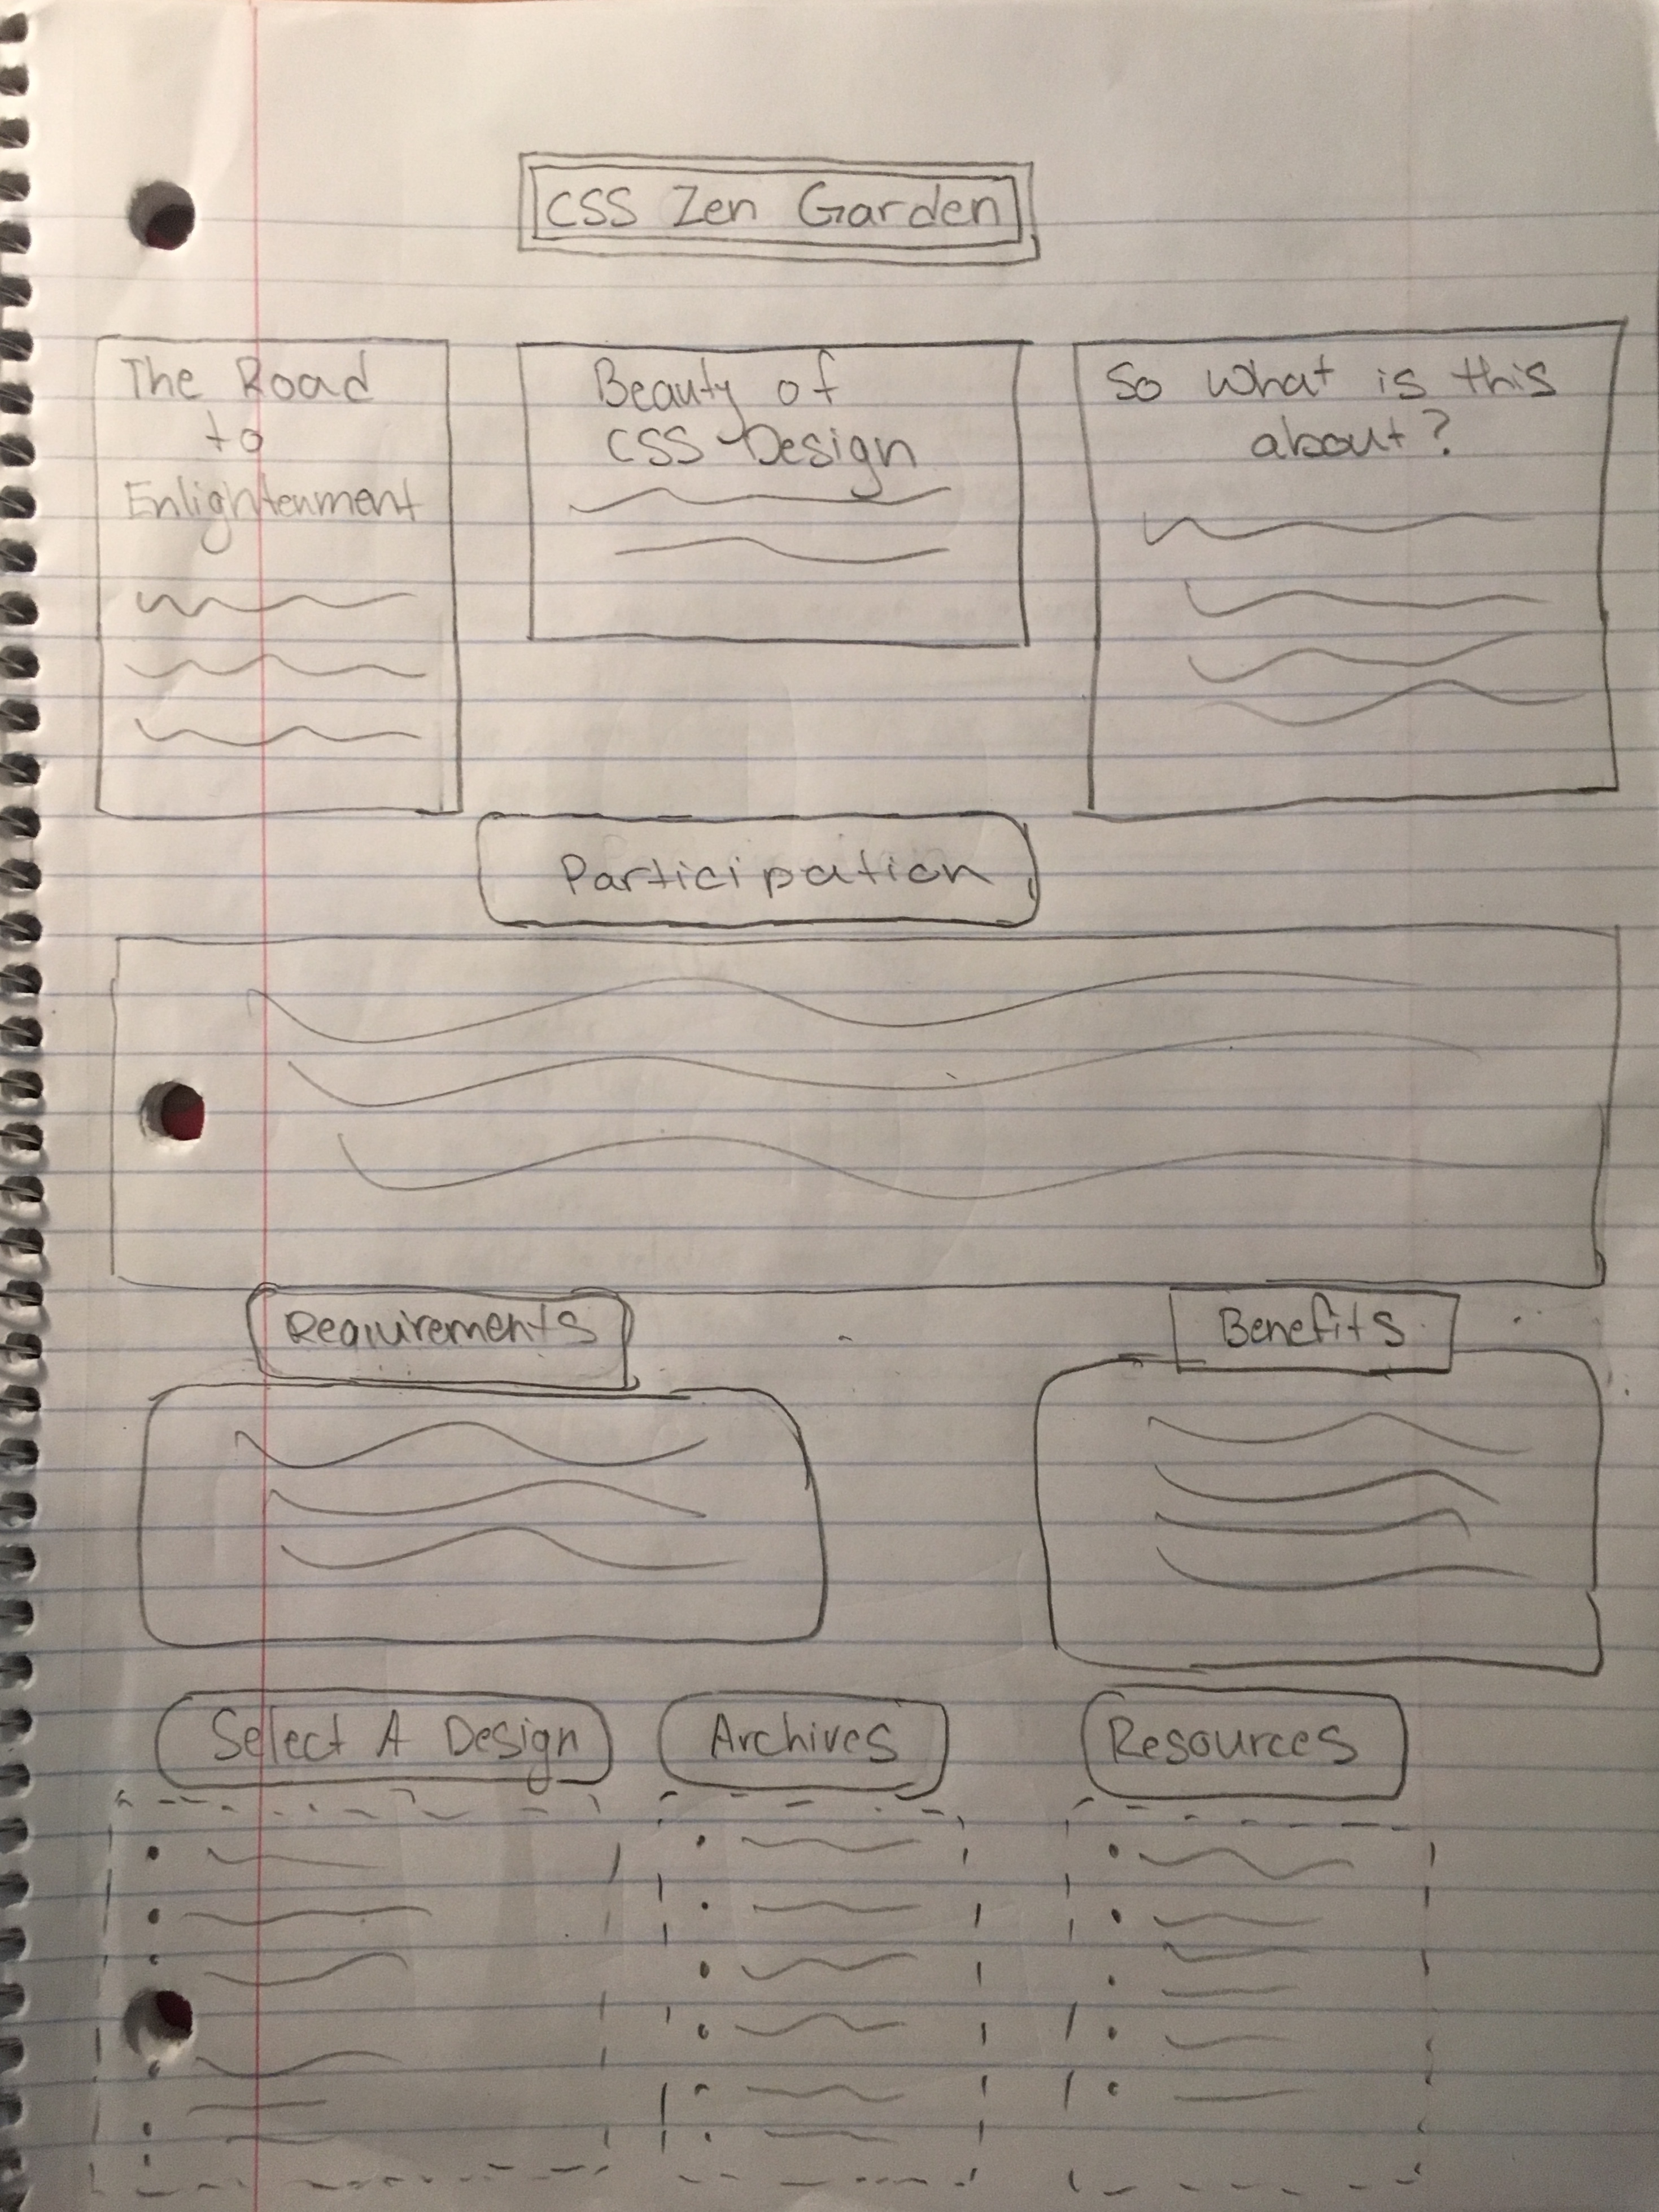 CSS Zen Garden
The Road
to
Enlightenment
Beauty of
CSS Design
So what is this
about?
Participation
Requirements
Benefits
Select A Design
Archives
Resources